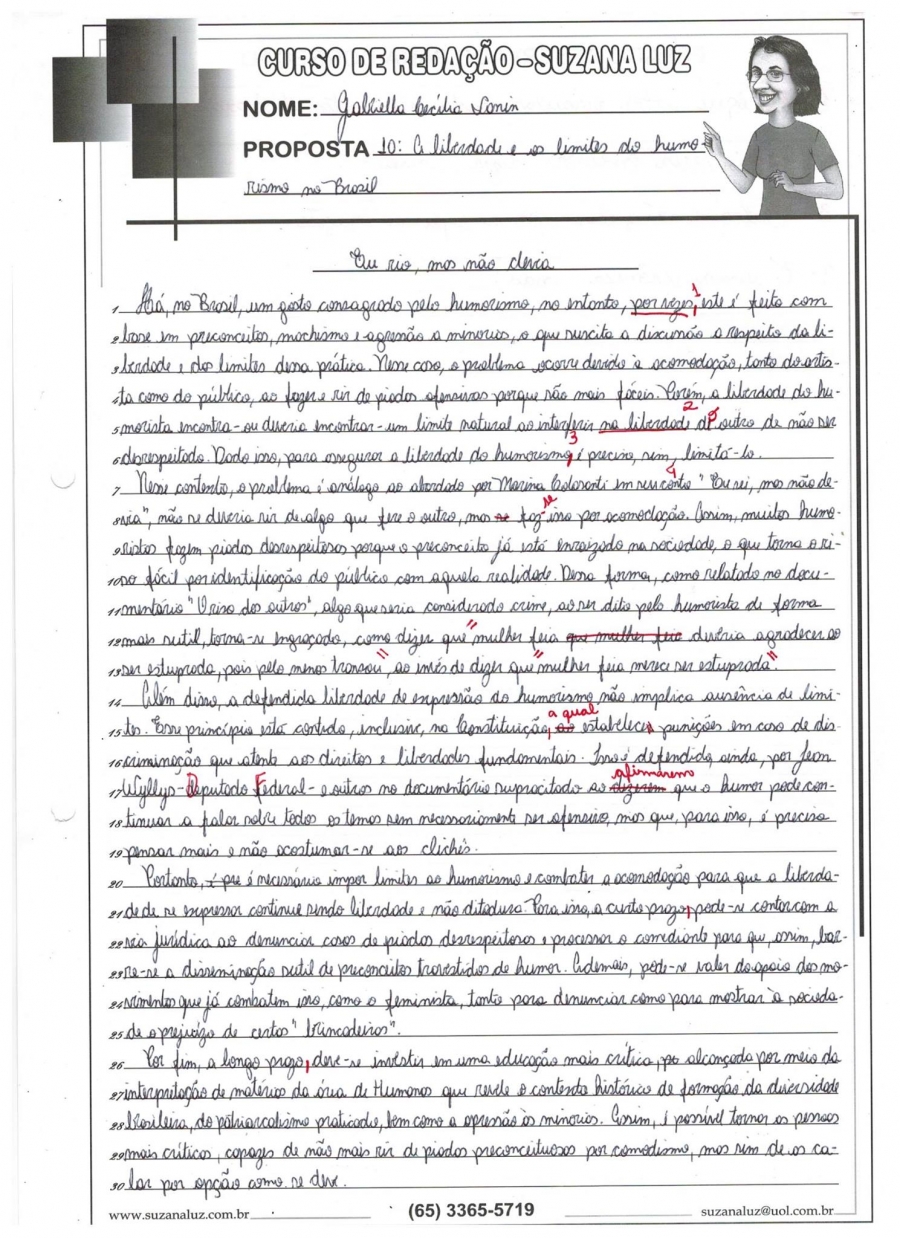 CURSO DE REDAÇÃO - SUZANA LUZ
NOME: Gabriella Cecília
PROPOSTA 10: A liberdade e os limites do humo-
rismo no Brasil
Eu rio, mas não devia
1 Há, no Brasil, um gosto consagrado pelo humorismo, no entanto, por vezes, 1 este é feito com
2 base em preconceitos, machismo e agressão a minorias, o que suscita a discussão a respeito da li-
3 berdade e dos limites dessa prática. Nesse caso, o problema ocorre devido à acomodação, tanto do artis-
4 ta como do público, ao fazer e rir de piadas ofensivas porque são mais fáceis. Porém, a liberdade do hu-
5 morista encontra-ou deveria encontrar-um limite natural ao interferir na liberdade 2 do outro de não ser
6 desrespeitado. Dado isso, para assegurar a liberdade do humorismo, 3 é preciso, sim, limitá-lo.
7 Nesse contexto, o problema é análogo ao abordado por Marina Colasanti em seu conto 4 "Eu sei, mas não de-
8 via", não se deveria rir de algo que fere o outro, mas se faz-se isso por acomodação. Assim, muitos humo-
9 ristas fazem piadas desrespeitosas porque o preconceito já está enraizado na sociedade, o que torna o ri-
10 so fácil por identificação do público com aquela realidade. Dessa forma, como relatado no docu-
11 mentário "O riso dos outros", algo que seria considerado crime, ao ser dito pelo humorista de forma
12 mais sutil, torna-se engraçado, como dizer que "mulher feia que mulher feia deveria agradecer ao
13 ser estuprada, pois pelo menos transou", ao invés de dizer que "mulher feia merece ser estuprada".
14 Além disso, a defendida liberdade de expressão do humorismo não implica ausência de limi-
15 tes. Esse princípio está contido, inclusive, na Constituição, a qual ao estabelecer punições em caso de dis-
16 criminação que atente aos direitos e liberdades fundamentais. Isso é defendido, ainda, por Jean
17 Wyllys-Deputado Federal-e outros no documentário supracitado ao afirmarem dizerem que o humor pode con-
18 tinuar a falar sobre todos os temas sem necessariamente ser ofensivo, mas que, para isso, é preciso
19 pensar mais e não acostumar-se aos clichês.
20 Portanto, é pre é necessário impor limites ao humorismo e combater a acomodação para que a liberda-
21 de de se expressar continue sendo liberdade e não ditadura. Para isso, a curto prazo, pode-se contar com a
22 via jurídica ao denunciar casos de piadas desrespeitosas e processar o comediante para que, assim, bar-
23 re-se a disseminação sutil de preconceitos travestidos de humor. Ademais, pode-se valer do apoio dos mo-
24 vimentos que já combatem isso, como o feminista, tanto para denunciar como para mostrar à socieda-
25 de o prejuízo de certas "brincadeiras".
26 Por fim, a longo prazo, deve-se investir em uma educação mais crítica, po alcançada por meio da
27 interpretação de matérias da área de Humanas que revele o contexto histórico de formação da diversidade
28 brasileira, do patriarcalismo praticado, bem como a opressão às minorias. Assim, é possível tornar as pessoas
29 mais críticas, capazes de não mais rir de piadas preconceituosas por comodismo, mas sim de as ca-
30 lar por opção como se deve.
www.suzanaluz.com.br (65) 3365-5719 suzanaluz@uol.com.br